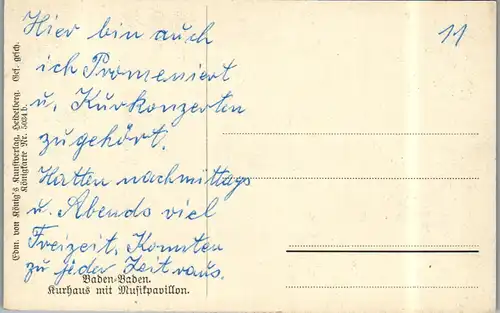 Hier bin auch
11
ich Promeniert
u. Kurkonzerten
zugehört.
Hatten nachmittags
u. Abends viel
Freizeit. Konnten
zu jeder Zeit raus.
Baden-Baden.
Kurhaus mit Musikpavillon.
Edm. von König's Kunstverlag, Heidelberg. Ges. gesch.
Königkarte Nr. 5024 b.